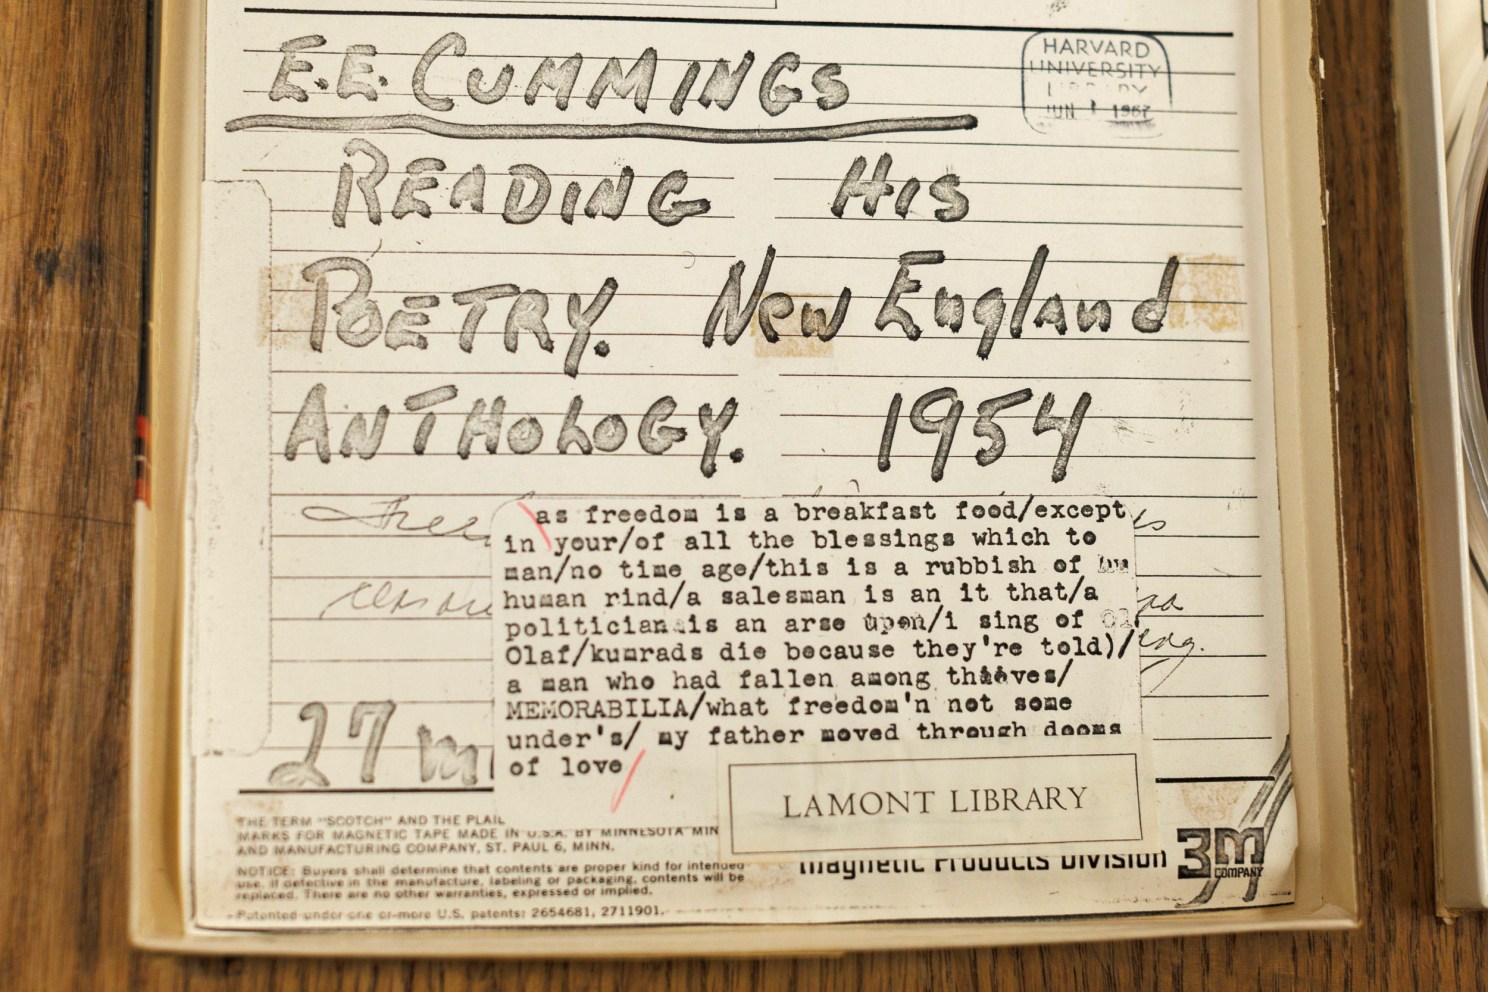 E.E. CUMMINGS
HARVARD
UNIVERSITY
JUN 1967
READING HIS
POETRY. New England
ANTHOLOGY. 1954
as freedom is a breakfast food/except
in your/of all the blessings which to
man/no time age/this is a rubbish of
human rind/a salesman is an it that/a
politician is an arse upon/i sing of
Olaf/kumrads die because they're told)/
a man who had fallen among thieves/
MEMORABILIA/what freedom'n not some
under's/ my father moved through dooms
of love
27 m
LAMONT LIBRARY
THE TERM "SCOTCH" AND THE PLAI
MARKS FOR MAGNETIC TAPE MADE IN U.S.A. BY MINNESOTA MIN
AND MANUFACTURING COMPANY, ST. PAUL 6, MINN.
NOTICE: Buyers shall determine that contents are proper kind for intended
use. If defective in the manufacture, labeling or packaging, contents will be
replaced. There are no other warranties, expressed or implied.
Patented under one or more U.S. patents: 2654681, 2711901.
magnetic Products Division
3M
COMPANY